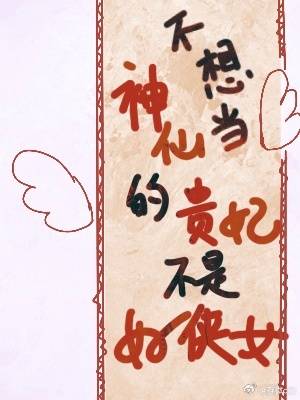 不想当
神仙
的贵妃
不是
好侠女